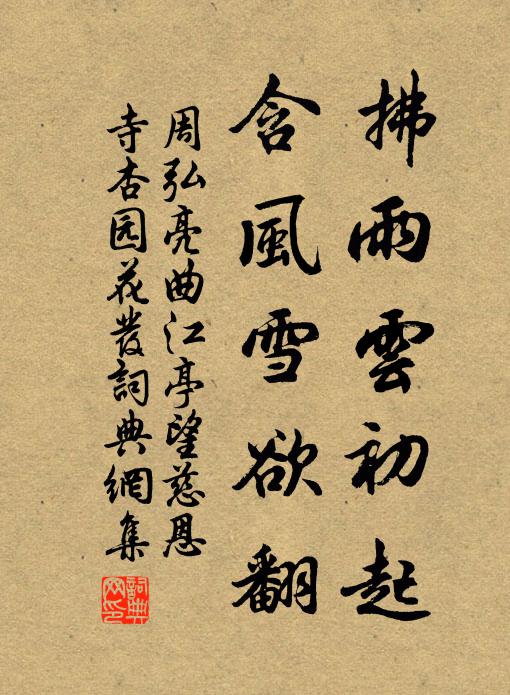 拂雨雲初起
含風雪欲翻
周弘亮曲江亭望慈恩
寺杏园花發詞典網集
詞典網印